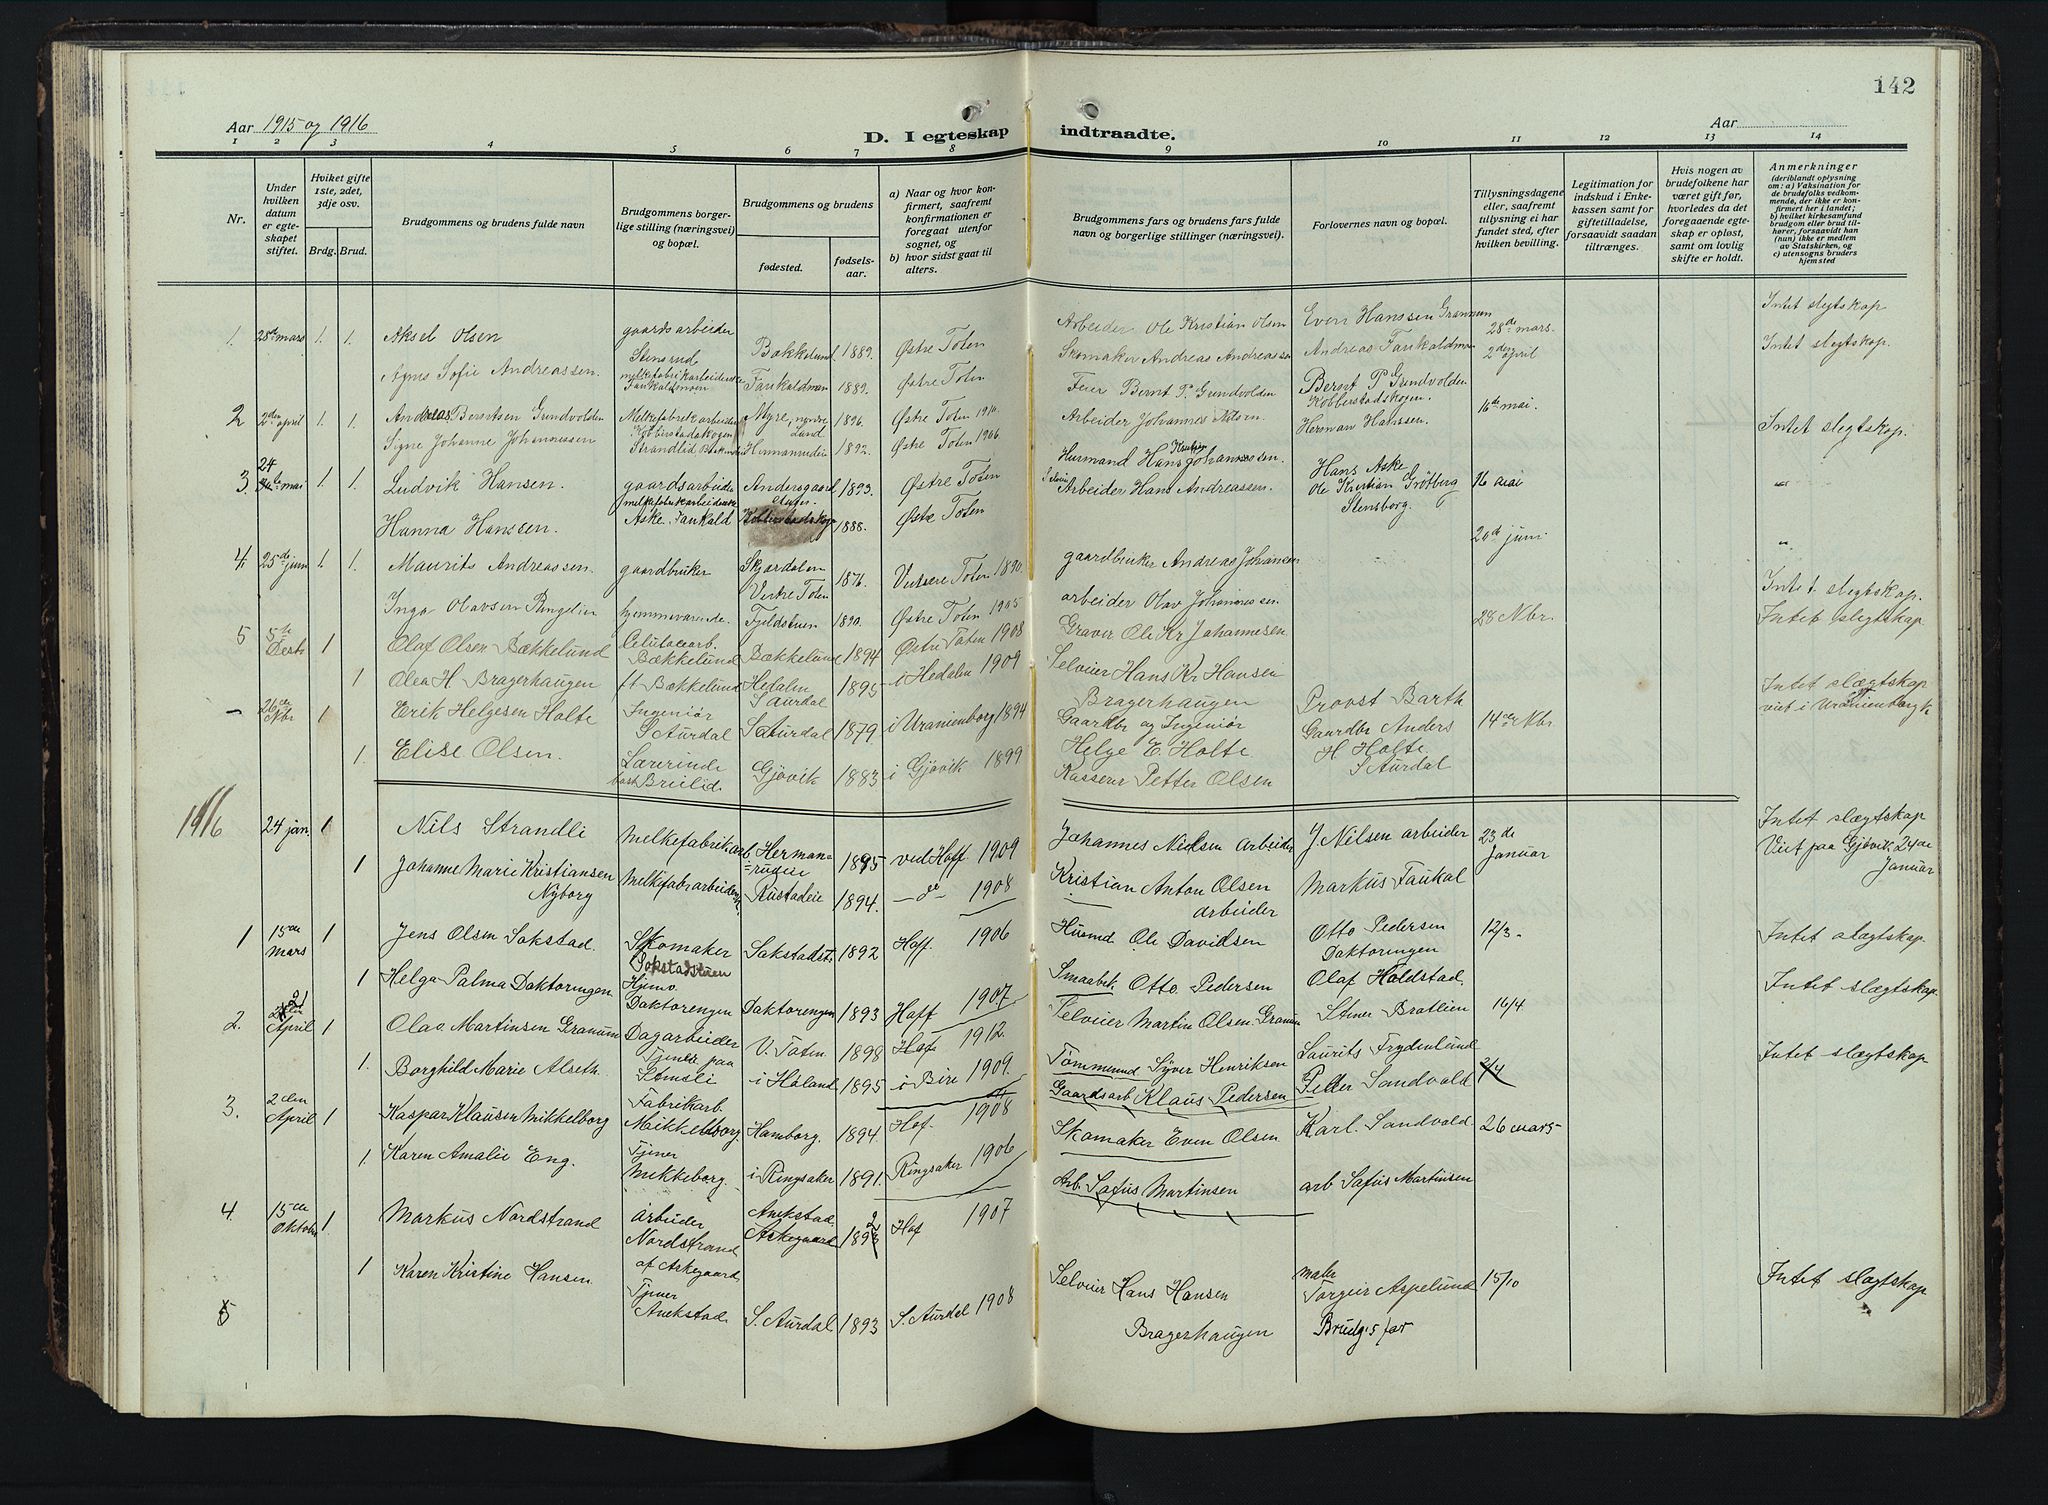 142
Aar 1915 og 1916
D. I egteskap indtraadte.
Aar
1 2 3 4 5 6 7 8 9 10 11 12 13 14
Nr.
Under hvilken datum er egteskapet stiftet.
Hviket gifte 1ste, 2det, 3dje osv.
Brdg. Brud.
Brudgommens og brudens fulde navn
Brudgommens borgerlige stilling (næringsvei) og bopæl.
Brudgommens og brudens
fødested.
fødselsaar.
a) Naar og hvor konfirmert, saafremt konfirmationen er foregaat utenfor sognet, og
b) hvor sidst gaat til alters.
Brudgommens fars og brudens fars fulde navn og borgerlige stillinger (næringsvei).
Forlovernes navn og bopæl.
Tillysningsdagene eller, saafremt tillysning ei har fundet sted, efter hvilken bevilling.
Legitimation for indskud i Enkekassen samt for giftetilladelse, forsaavidt saadan tiltrænges.
Hvis nogen av brudefolkene har været gift før, hvorledes da det foregaaende egteskap er opløst, samt om lovlig skifte er holdt.
Anmerkninger (deriblandt oplysning om: a) Vaksination for de brudefolks vedkommende, der ikke er konfirmert her i landet; b) hvilket kirkesamfund brudgom eller brud tilhører, forsaavidt han (hun) ikke er medlem av Statskirken, og c) utensogns bruders hjemsted
Intet slegtskap
1. 28de mars 1. 1. Aksel Olsen gaardsarbeider Stensrud Bækkelund 1889. Østre Toten Arbeider Ole Kristian Olsen Even Hanssen Grannum 28de mars. Intet slegtskap.
Agnes Sofie Andreassen. melkefabrikarbeiderske Faukaldsmoen Faukaldmoen 1889. Østre Toten Skomaker Andreas Andreassen Andreas Faukaldmoen 2den april
2 2den april 1. 1. Andreas Berntsen Grundvolden Melkefabrikarbeider Kobberstadskogen Myre, nordre Lund 1896. Østre Toten 1910. Feier Bernt P. Grundvolden Bernt P Grundvolden Kobberstadskogen. 16de mai. Intet slegtskap.
Signe Johanne Johannessen Strandlid 1892. Østre Toten 1906 Arbeider Johannes Nilsen. Herman Hanssen.
3. 24 mai 1. 1. Ludvik Hansen. gaardsarbeider Andersgaard 1893. Østre Toten Husmand Hans Kristian Johannessen. Hans Aske 16 mai „
Hanna Hanssen. melkefabrikarbeiderske Aske. Faukald 1888. Østre Toten Arbeider Hans Andreassen. Ole Kristian Grøtberg Stensborg.
4. 25de juni 1. 1. Maurits Andreassen. gaardbruker Skjærdalen Vestre Toten 1876. Vestre Toten 1890. gaardbruker Andreas Johansen 20de juni „
Inga Olavsen Ringelien hjemmeværende. Fjeldstuen 1890. Østre Toten 1905 arbeider Olav Johannessen Intet slegtskap.
5 5te Desbr 1 Olaf Olsen Bækkelund Celulosearb. Bækkelund Bækkelund 1894 Østre Toten 1908 Graver Ole Kr Johannesen 28 Nbr. Intet slegtskap.
1 Olea H. Bragerhaugen ft Bækkelund Hedalen S Aurdal 1895 i Hedalen 1909 Selveier Hans Kr Hansen Bragerhaugen
– 26de Nbr 1 Erik Helgesen Holte Ingeniør S Aurdal S Aurdal 1879. i Uranienborg 1894 Gaardbr og Ingeniør Helge E. Holte Provst Barth 14de Nbr. Intet slægtskap viet i Uranienborg k
1. Elise Olsen. Lærerinde Breilid. Gjøvik 1883 i Gjøvik 1899 Kasserer Petter Olsen Gaardbr Anders H. Holte. S Aurdal
1916 24 jan. 1 Nils Strandli Melkefabrikarb. Hermansrudeie 1895 ved Hoff. 1909 Johannes Nielsen arbeider J. Nilsen arbeider 23de Januar Intet slægtskap
1 Johanne Marie Kristiansen Nyborg Melkefabrarbeidersk. Rustadeie 1894. — do — 1908 Kristian Anton Olsen arbeider Markus Faukal Viet paa Gjøvik 24de Januar
1 15de Mars 1 Jens Olsen Sokstad. Skomaker Sokstadstuen Sakstadst. 1892 Hoff. 1906 Husmd Ole Davidsen Otto Pedersen Daktoringen 12/3. Intet slægtskap.
1 Helga Palma Daktoringen Hjemv. Daktorengen Daktorengen 1893 Hoff 1907 Smaabrk. Otto Pedersen Olaf Holdstad. Intet slægtskap.
2. April 1 Olav Martinsen Granum Dagarbeider V. Toten. 1898 Hof 1912. Selveier Martin Olsen. Granum Stener Bratlien 16/4
1. Borghild Marie Alseth. Tjener paa Stensli i Høland 1895 i Biri 1909. Tømmermd Syver Henriksen Laurits Frydenlund Intet slægtskap
3. 2den April 1 Kaspar Klausen Mikkelborg Fabrikarb. Mikkelborg. Hamborg. 1894. Hof. 1908 Gaardsarb Klaus Pedersen Petter Sandvold 2/4
1. Karen Amalie Eng. Tjener Mikkeborg. i Ringsaker 1891. Ringsaker 1906 Skomaker Even Olsen Karl. Sandvold. 26 mars
4. 15de Oktobr 1 Markus Nordstrand Arbeider Nordstrand af Askegaard. Anekstad. Askegaard 1892 Hof 1907 Arb. Sofus Martinsen arb Sofus Martinsen
1 Karen Kristine Hansen. Tjener Anekstad. S. Aurdal 1893 S. Aurdal 1908 Selveier Hans Hansen Bragerhaugen maler Torgeir Aspelund Brudg.s far 15/10 Intet slægtskap
5